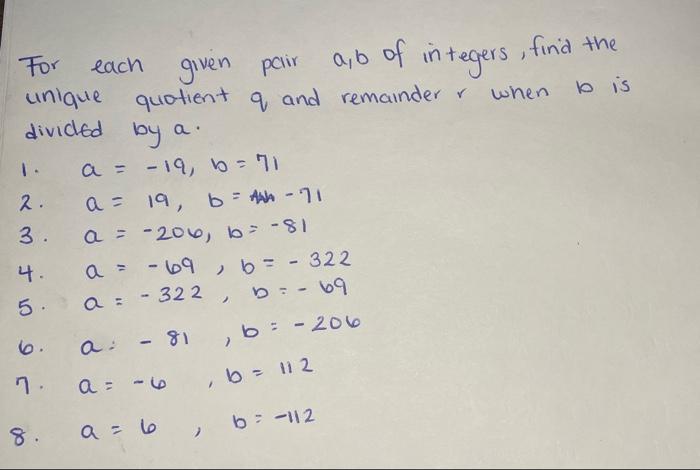 For each given pair a,b of integers, find the
unique quotient q and remainder r when b is
divided by a.
1. a = -19, b = 71
2. a = 19, b = -71
3. a = -206, b = -81
4. a = -69, b = -322
5. a = -322, b = -69
6. a = -81, b = -206
7. a = -6, b = 112
8. a = 6, b = -112